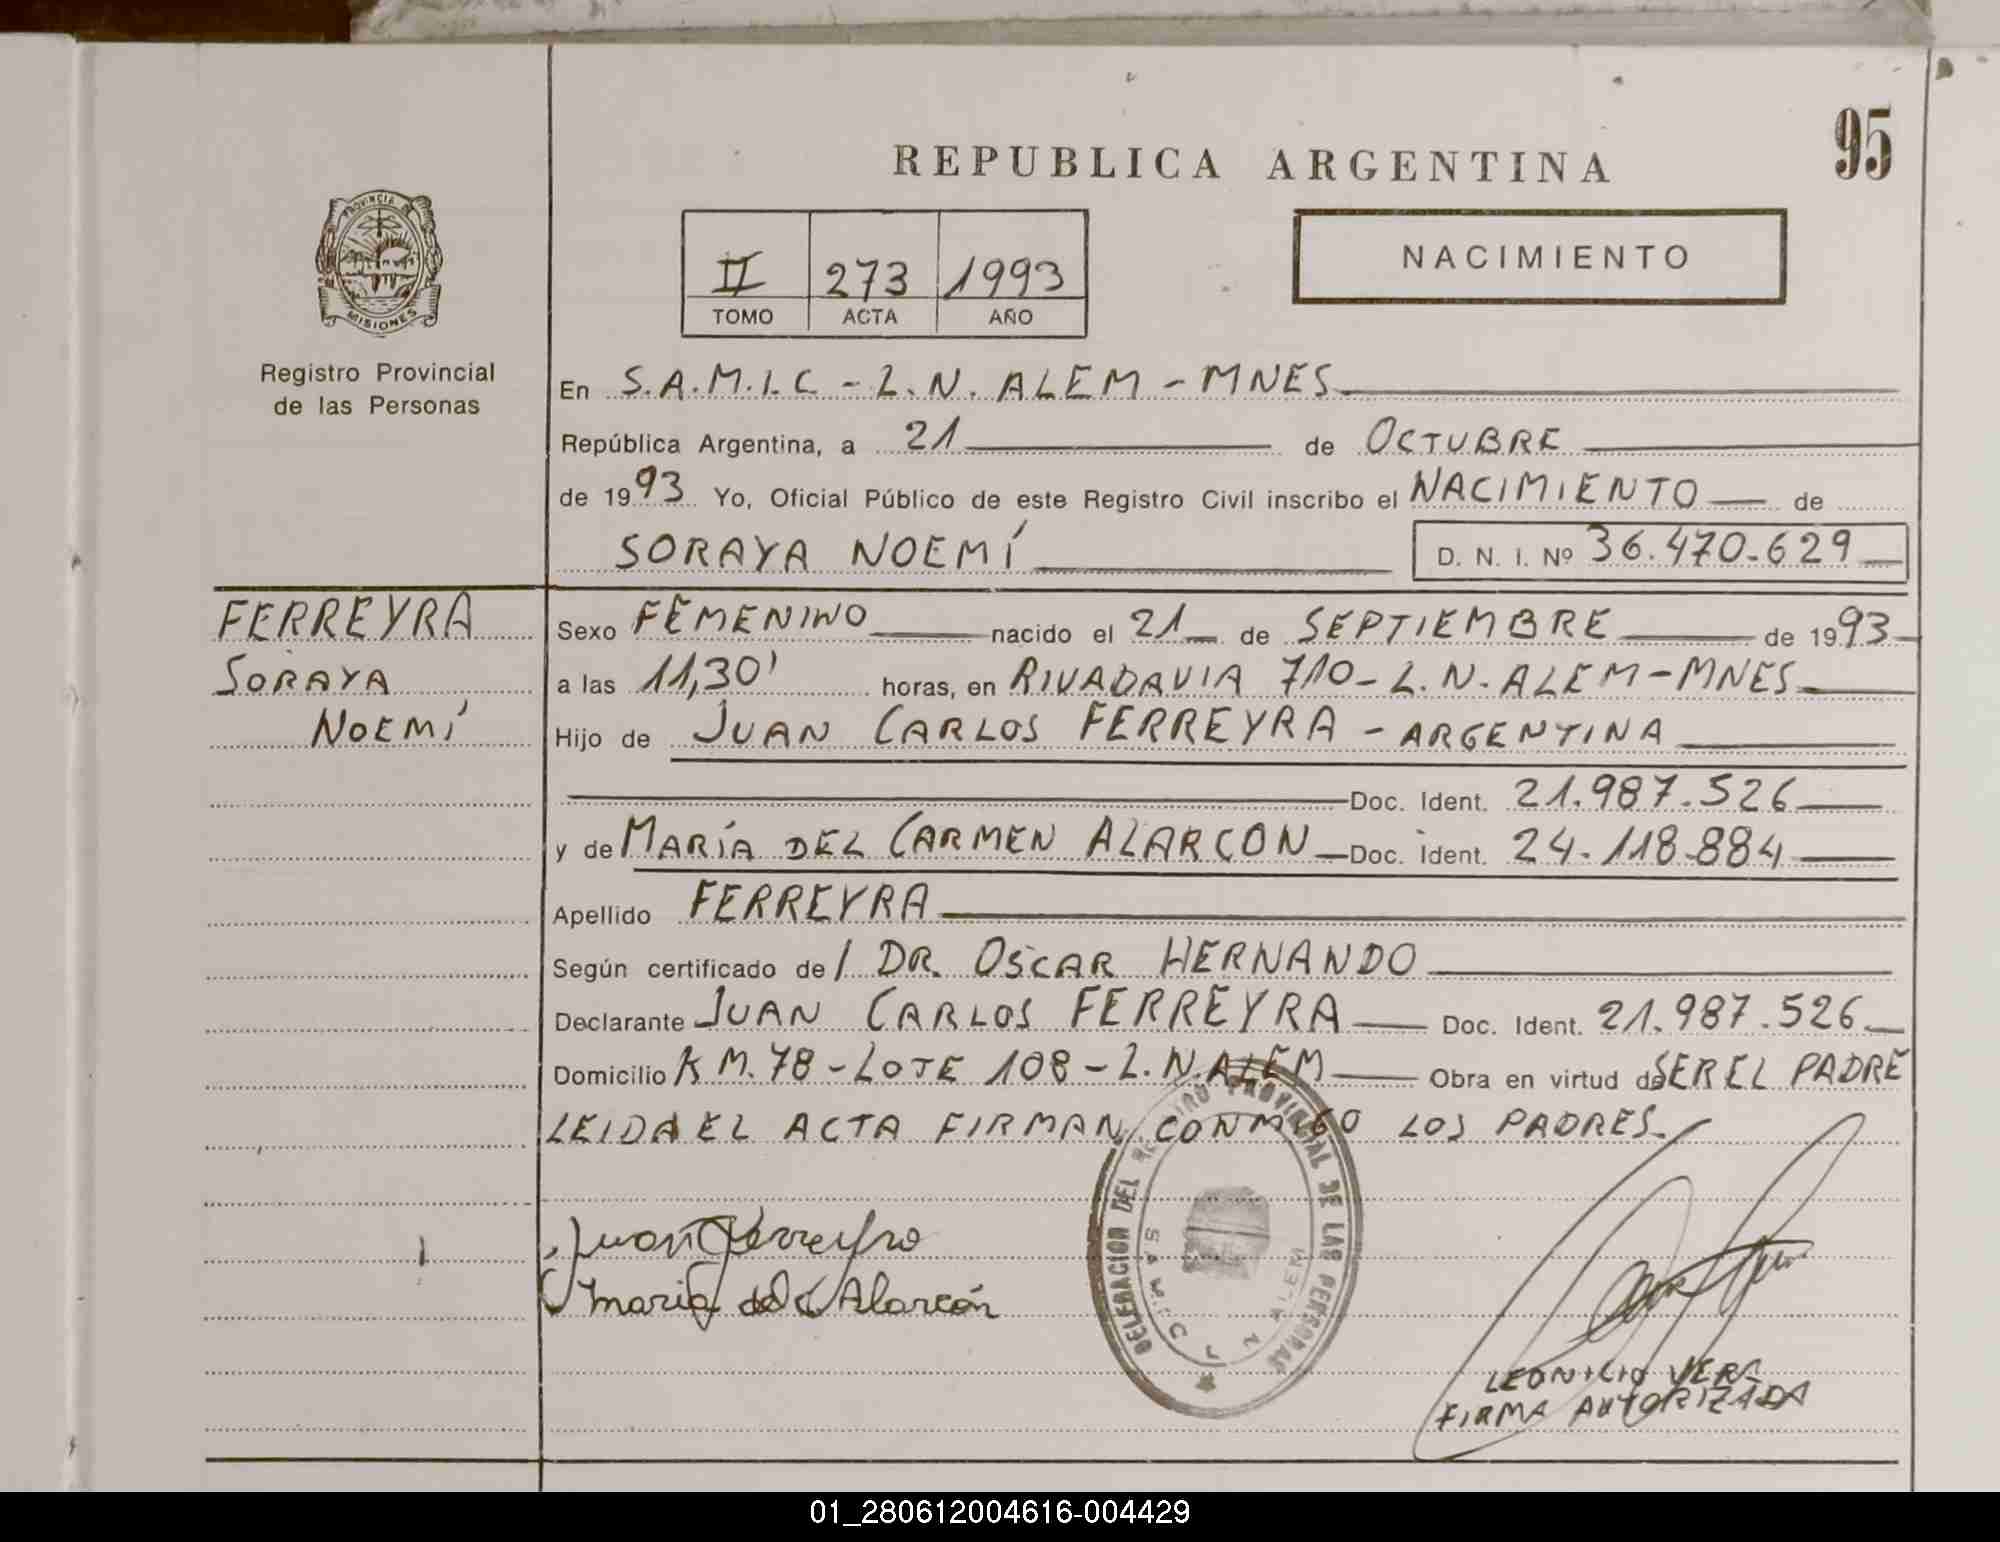 95
REPUBLICA ARGENTINA
PROVINCIA DE
MISIONES
II 273 1993
TOMO ACTA AÑO
NACIMIENTO
Registro Provincial
de las Personas
En S.A.M.I.C - L.N. ALEM - MNES
República Argentina, a 21 de OCTUBRE
de 1993 Yo, Oficial Público de este Registro Civil inscribo el NACIMIENTO de
SORAYA NOEMÍ D. N. I. Nº 36.470.629
FERREYRA
SORAYA
NOEMÍ
Sexo FEMENINO nacido el 21 de SEPTIEMBRE de 1993
a las 11,30' horas, en RIVADAVIA 710 - L.N. ALEM - MNES
Hijo de JUAN CARLOS FERREYRA - ARGENTINA
Doc. Ident. 21.987.526
y de MARÍA DEL CARMEN ALARCON Doc. Ident. 24.118.884
Apellido FERREYRA
Según certificado de / DR. OSCAR HERNANDO
Declarante JUAN CARLOS FERREYRA Doc. Ident. 21.987.526
Domicilio KM. 78 - LOTE 108 - L.N. ALEM Obra en virtud de SER EL PADRE
LEIDA EL ACTA FIRMAN CONMIGO LOS PADRES.
Juan Ferreyra
Maria del C Alarcón
DELEGACION DEL REGISTRO PROVINCIAL DE LAS PERSONAS
S A M I C L N ALEM
LEONICIO VERA
FIRMA AUTORIZADA
01_280612004616-004429